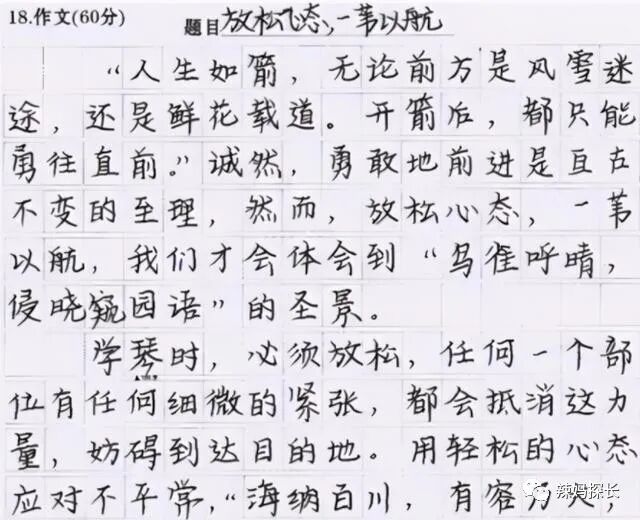 18.作文(60分)
题目放松心态,一苇以航
“人生如箭，无论前方是风雪迷
途，还是鲜花载道。开箭后，都只能
勇往直前。”诚然，勇敢地前进是亘古
不变的至理，然而，放松心态，一苇
以航，我们才会体会到“乌雀呼晴，
侵晓窥园语”的圣景。
学琴时，必须放松，任何一个部
位有任何细微的紧张，都会抵消这力
量，妨碍到达目的地。用轻松的心态
应对不平常，“海纳百川，有容乃大，
辣妈探长